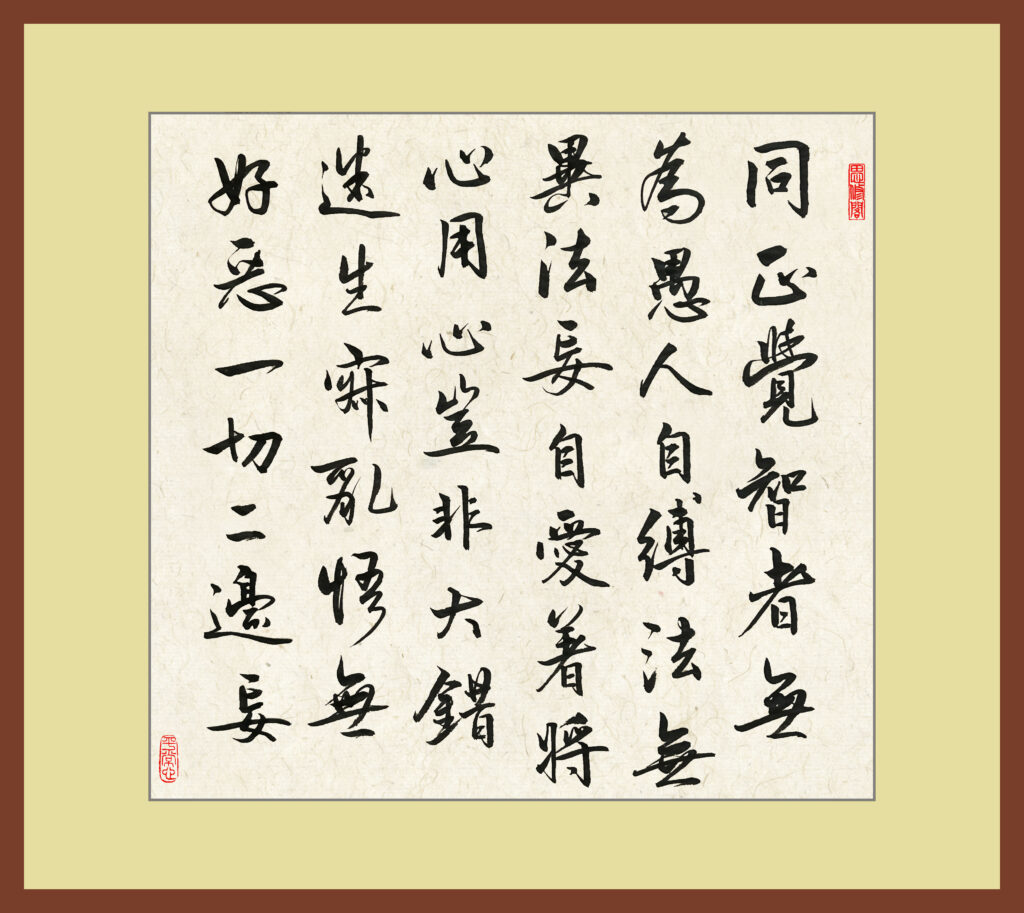 思修閣
同正覺智者無
為愚人自縛法無
異法妄自愛著將
心用心豈非大錯
迷生寂亂悟無
好惡一切二邊妄
平常心